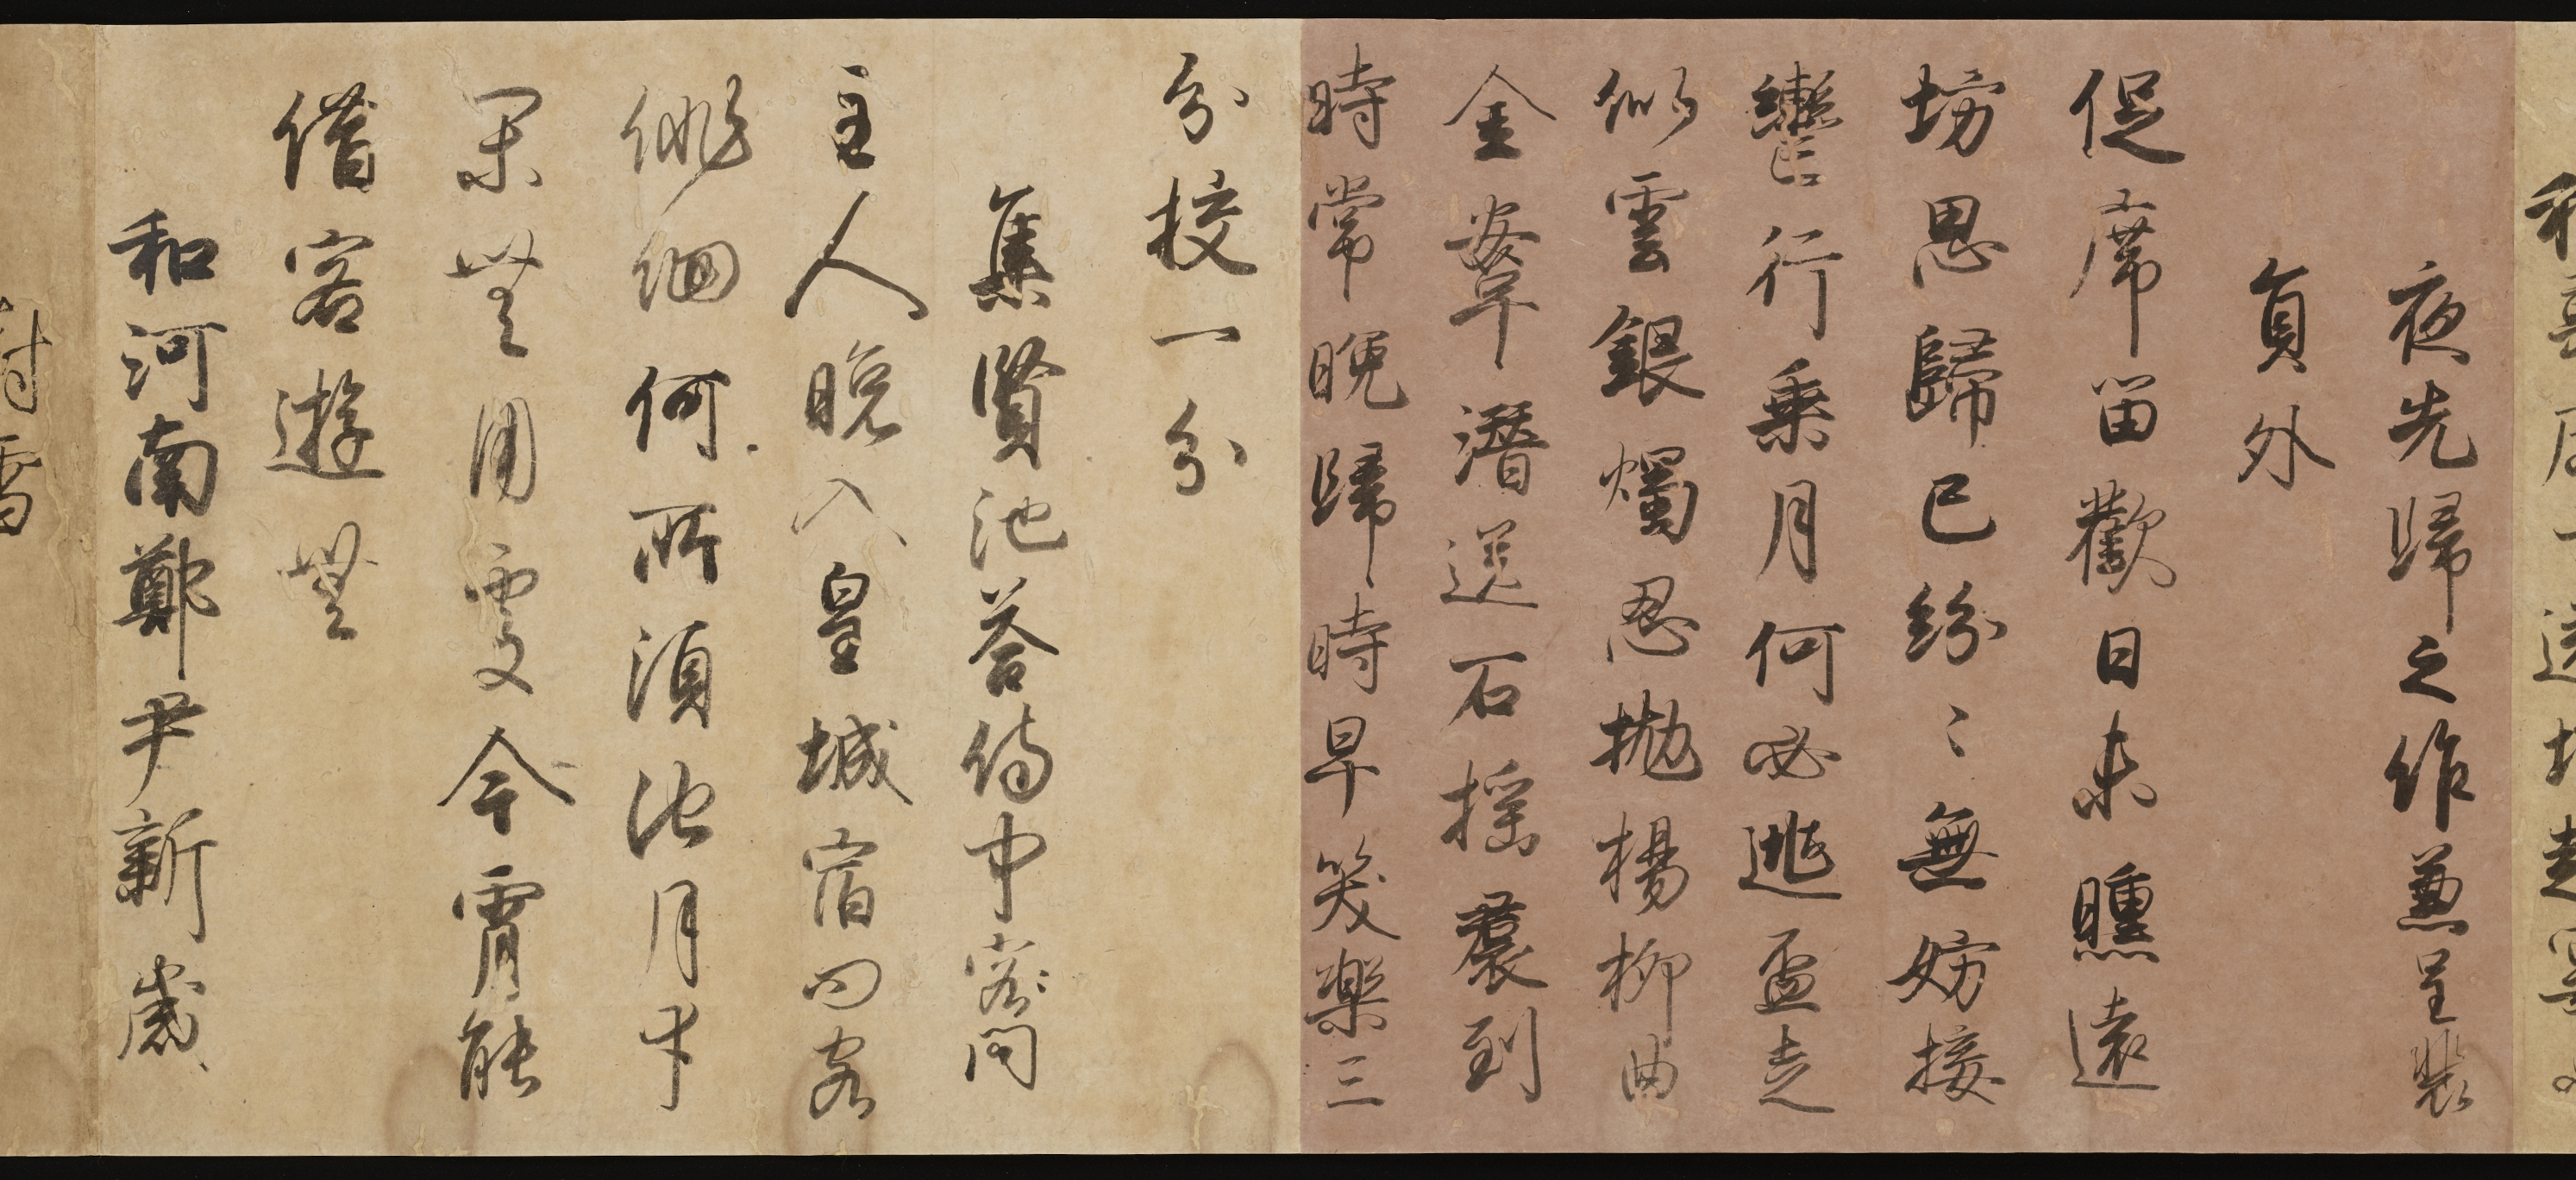 夜先歸之作兼呈裴
員外
促席留歡日未曛遠
坊思歸已紛〻無妨接
轡行乘月何必逃盃走
似雲銀燭忍抛楊柳曲
金鞍潛送石榴裙到
時常晚歸時早笑樂三
分挍一分
集賢池荅侍中客問
主人晚入皇城宿問客
徘徊何所須池月幸
閑無用處今宵能
借客遊無
和河南鄭尹新歲
對雪